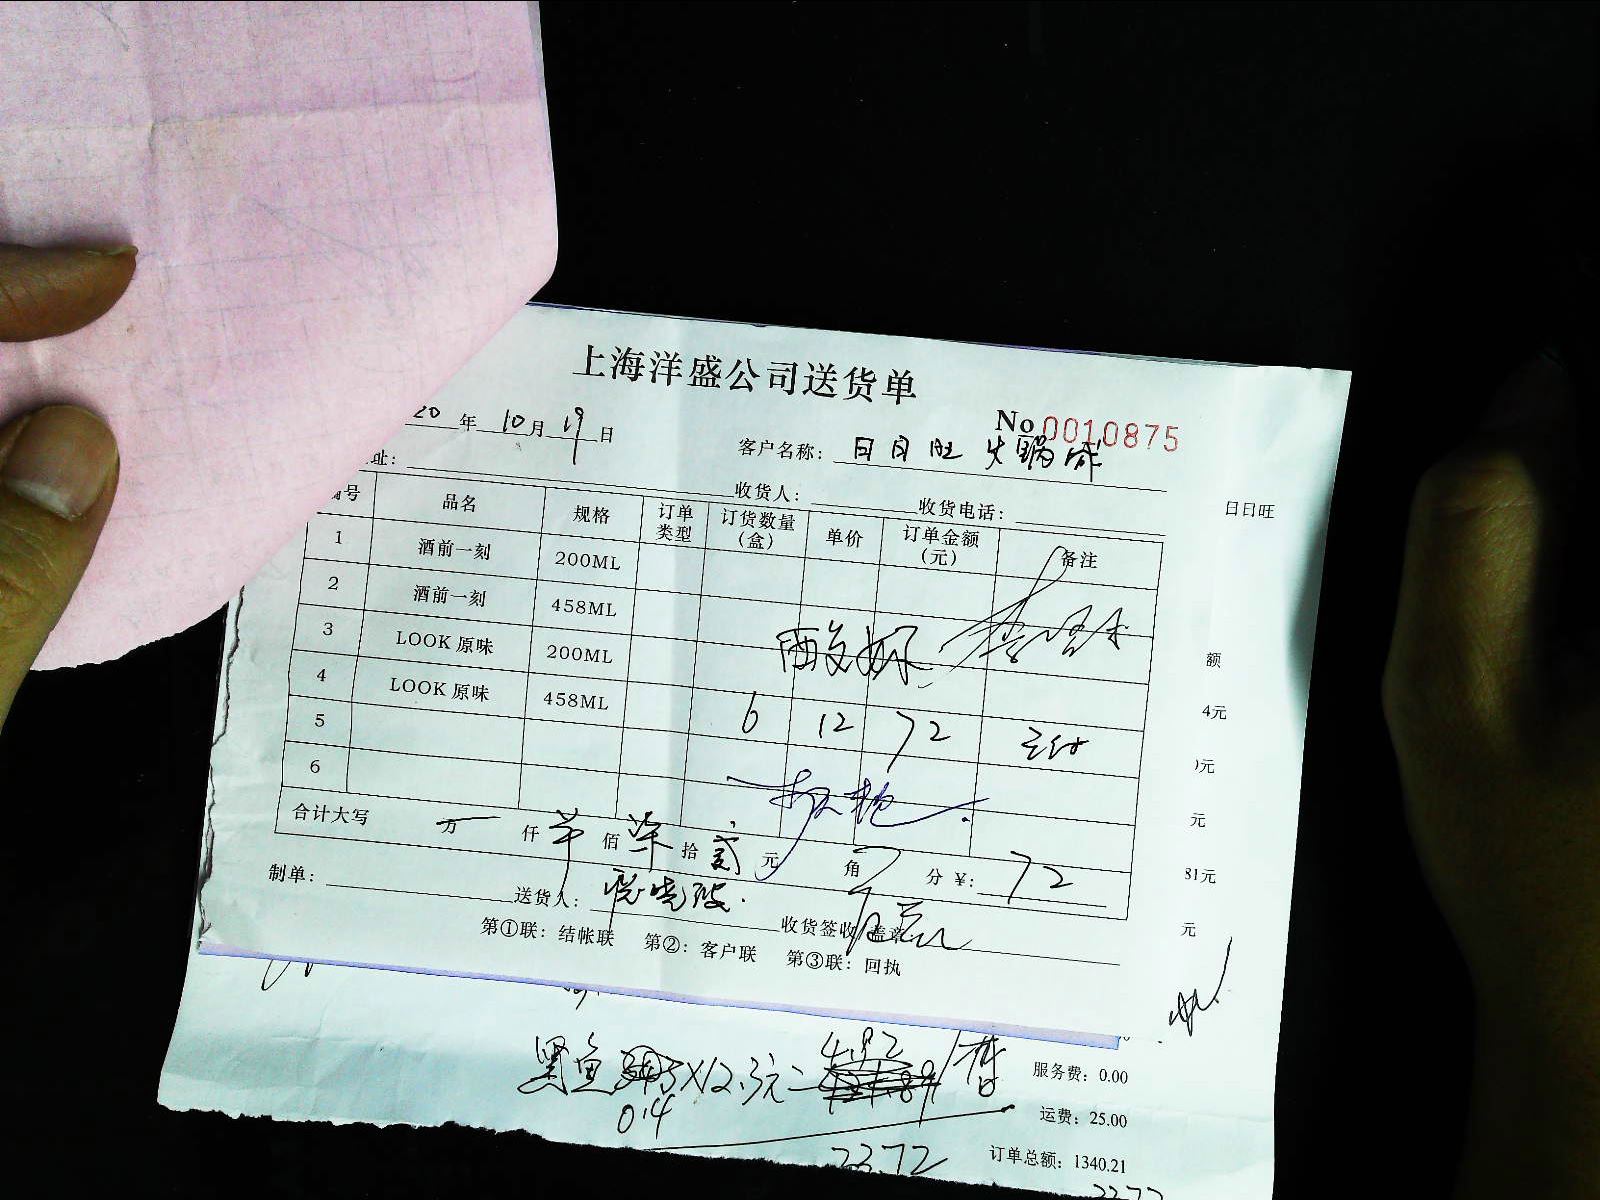 上海洋盛公司送货单
20年10月19日
No 0010875
客户名称：日月旺 火锅城
址：
收货人：
收货电话：
日日旺
编号 品名 规格 订单类型 订货数量（盒） 单价 订单金额（元） 备注
1 酒前一刻 200ML
2 酒前一刻 458ML
3 LOOK 原味 200ML 酸奶
额
4 LOOK 原味 458ML 6 12 72
4元
5
)元
6
元
合计大写 万 仟 佰 柒 拾 贰 元 角 分 ¥：72
81元
制单： 送货人： 收货签收 盖章
元
第①联：结帐联 第②：客户联 第③联：回执
黑鱼 X12.3元=
服务费：0.00
0.4
运费：25.00
2372
订单总额：1340.21